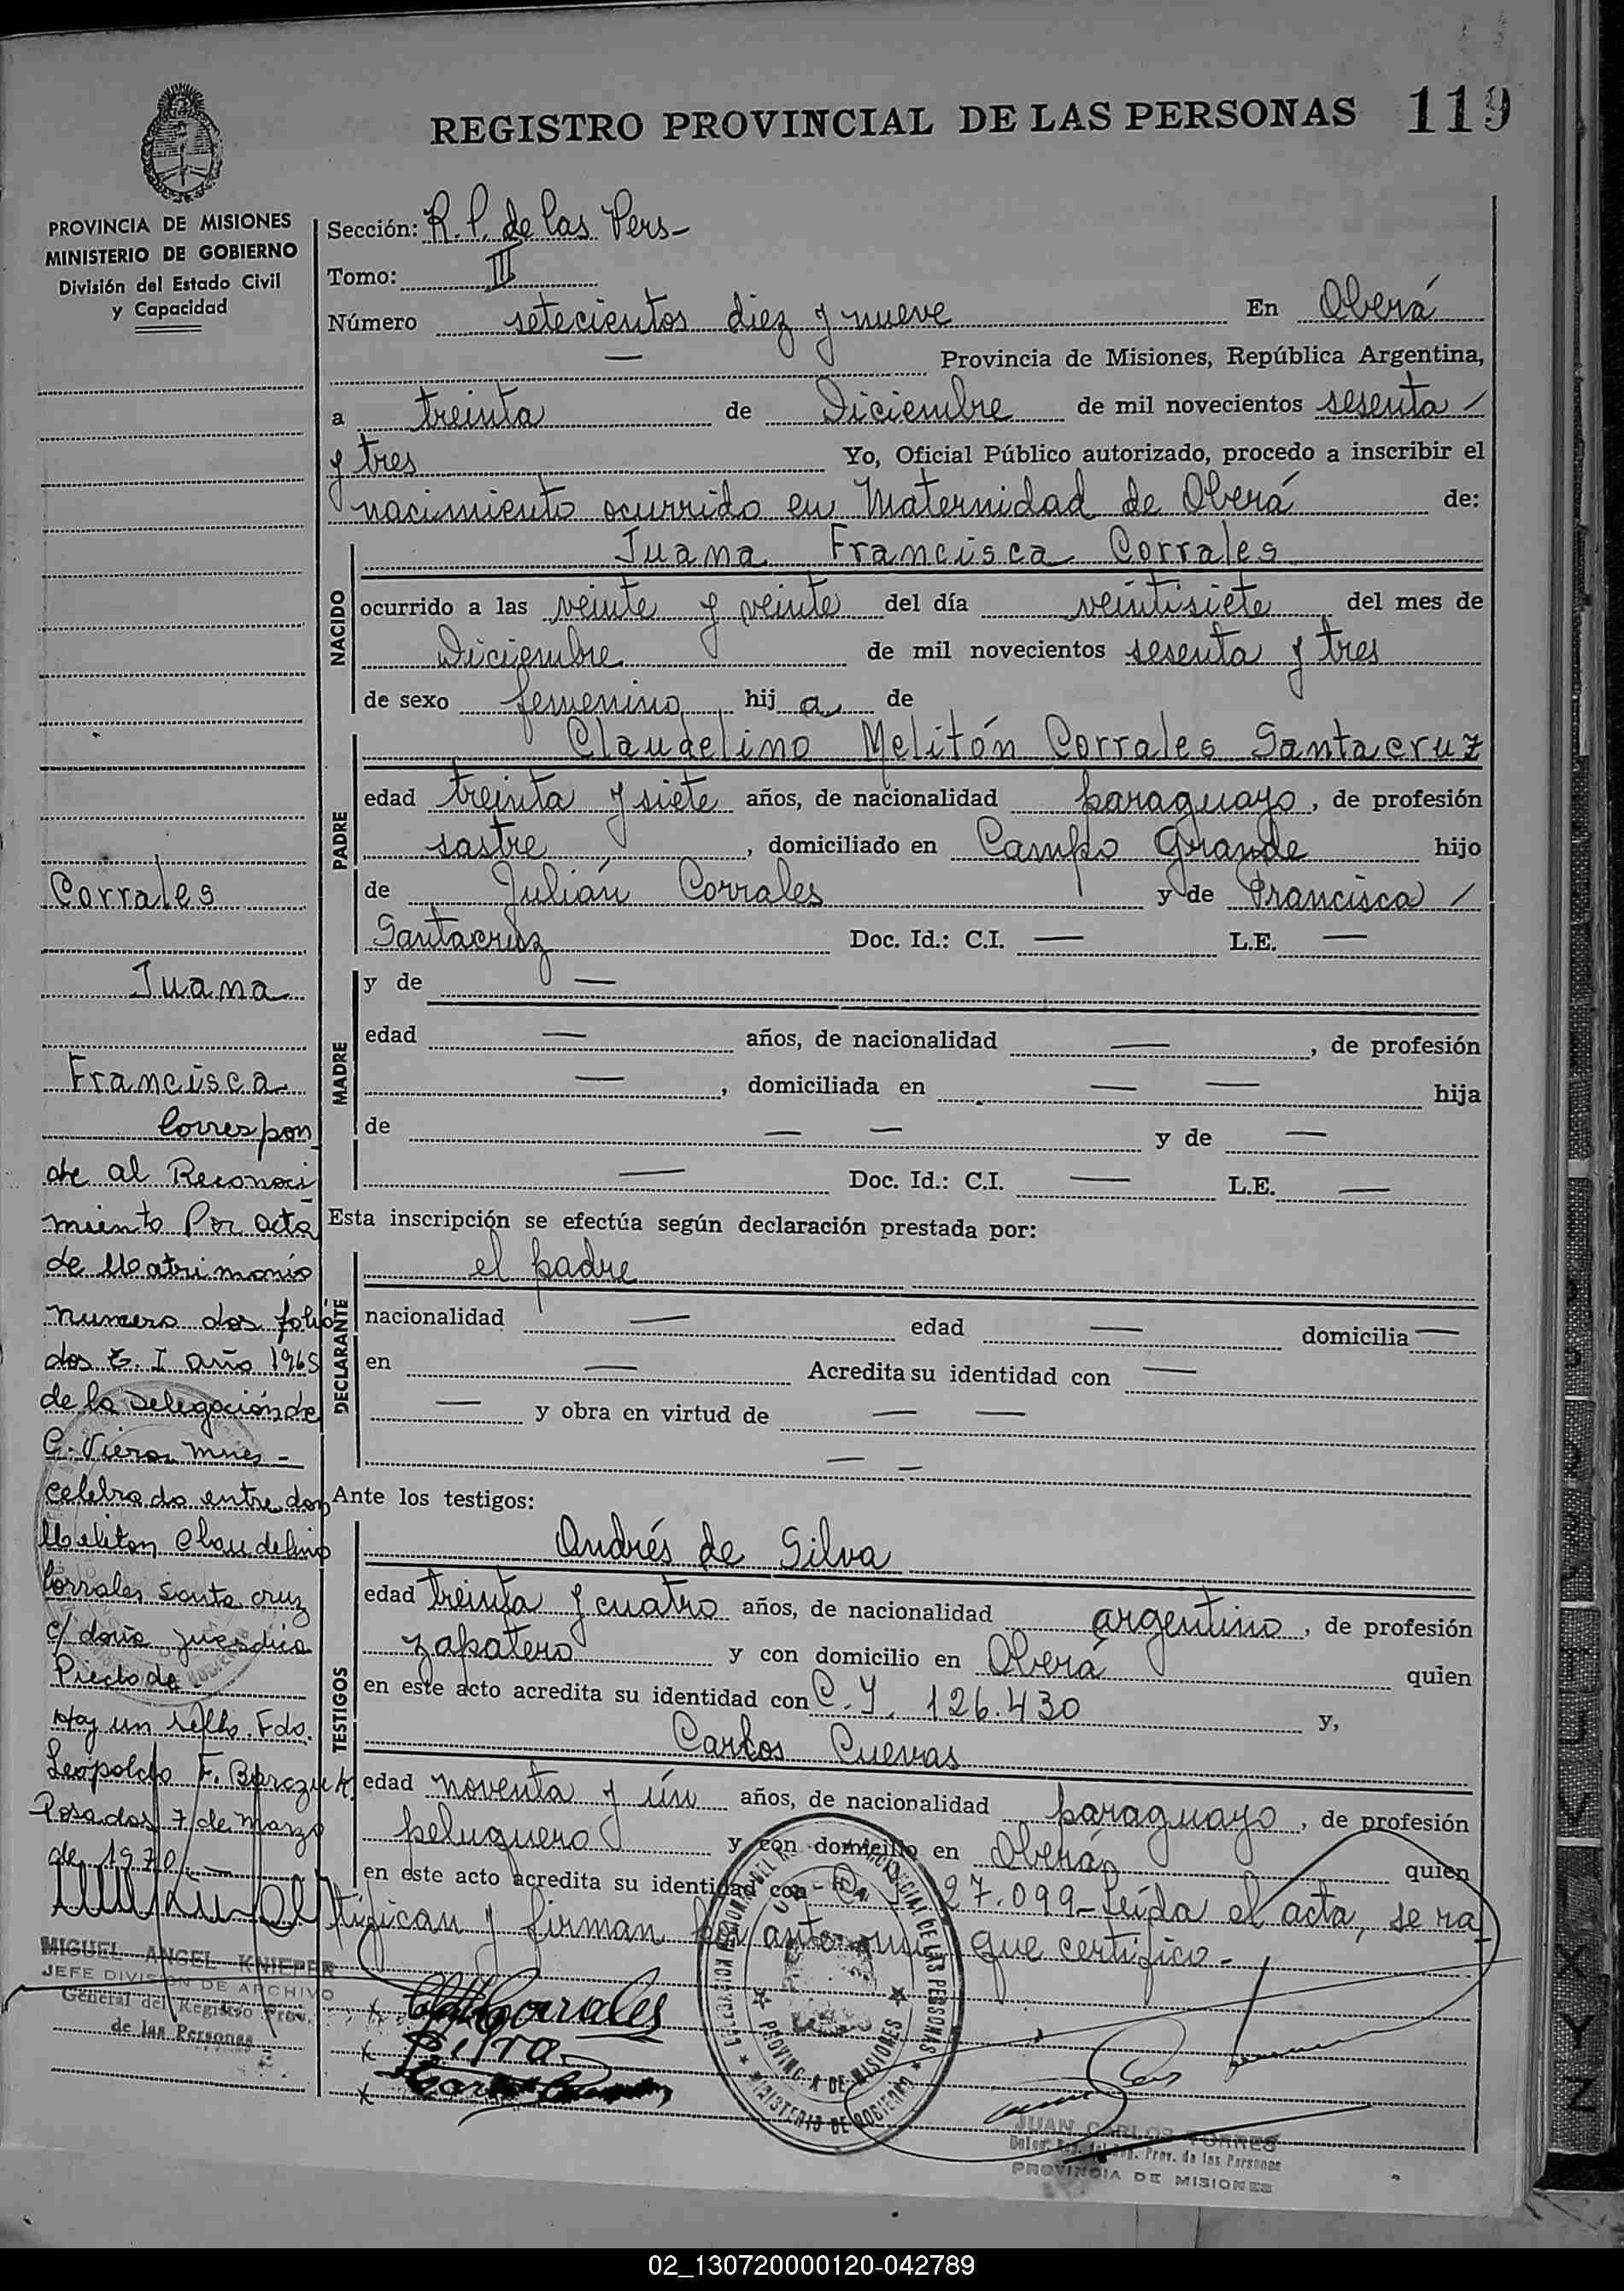 REGISTRO PROVINCIAL DE LAS PERSONAS 119
PROVINCIA DE MISIONES
MINISTERIO DE GOBIERNO
División del Estado Civil
y Capacidad
Sección: R. P. de las Pers-
Tomo: III
Número setecientos diez y nueve En Oberá
— Provincia de Misiones, República Argentina,
a treinta de Diciembre de mil novecientos sesenta /
y tres Yo, Oficial Público autorizado, procedo a inscribir el
nacimiento ocurrido en Maternidad de Oberá de:
NACIDO
Juana Francisca Corrales
ocurrido a las veinte y veinte del día veintisiete del mes de
Diciembre de mil novecientos sesenta y tres
de sexo femenino hij a de
PADRE
Claudelino Melitón Corrales Santacruz
edad treinta y siete años, de nacionalidad paraguayo, de profesión
sastre, domiciliado en Campo Grande hijo
de Julián Corrales y de Francisca /
Santacruz Doc. Id.: C.I. — L.E. —
MADRE
y de —
edad — años, de nacionalidad —, de profesión
—, domiciliada en — — hija
de — — y de —
— Doc. Id.: C.I. — L.E. —
Esta inscripción se efectúa según declaración prestada por:
DECLARANTE
el padre
nacionalidad — edad — domicilia —
en — Acredita su identidad con —
— y obra en virtud de — —
— —
Ante los testigos:
TESTIGOS
Andrés de Silva
edad treinta y cuatro años, de nacionalidad argentino, de profesión
zapatero y con domicilio en Oberá quien
en este acto acredita su identidad con C. I. 126.430 y,
Carlos Cuevas
edad noventa y ún años, de nacionalidad paraguayo, de profesión
peluquero y con domicilio en Oberá quien
en este acto acredita su identidad con 27.099- Leída el acta, se ra_
tifican y firman por ante mi que certifico.-
Corrales
Juana
Francisca
Correspon
de al Reconoci
miento Por acta
de Matrimonio
numero dos folio
dos T. I año 1965
de la Delegación de
C. Viera Mnes -
celebrado entre don
Meliton Claudelino
Corrales Santa cruz
c/ doña
Hay un sello. Fdo.
Leopoldo F.
Posadas 7 de Marzo
de 1970. —
MIGUEL ANGEL KNIEPER
JEFE DIVISION DE ARCHIVO
General del Registro Prov.
de las Personas
x Corrales
x Silva
x
PROVINCIAL DE LAS PERSONAS
PROVINCIA DE MISIONES
MINISTERIO DE GOBIERNO
JUAN CARLOS TORRES
Prov. de las Personas
PROVINCIA DE MISIONES
02_130720000120-042789